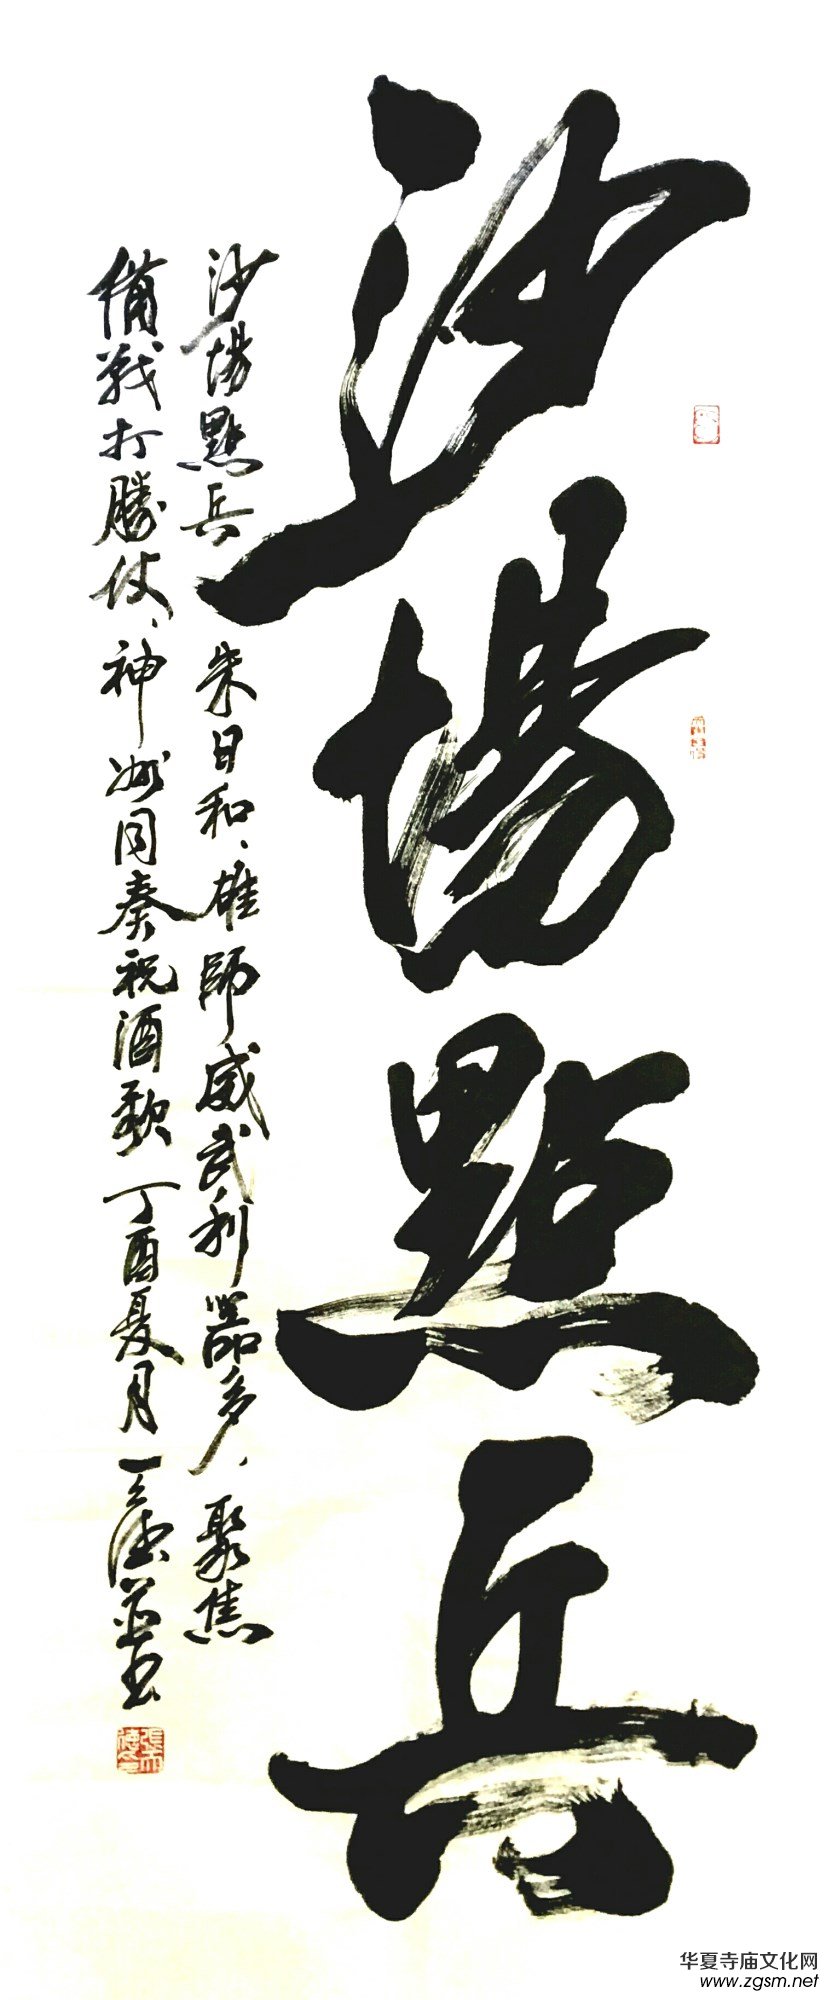 沙場點兵
沙場點兵 朱日和、雄師威武利器多、聚焦
備戰打勝仗、神州同奏祝酒歌 丁酉夏月 天德并书
华夏寺庙文化网
www.zgsm.net